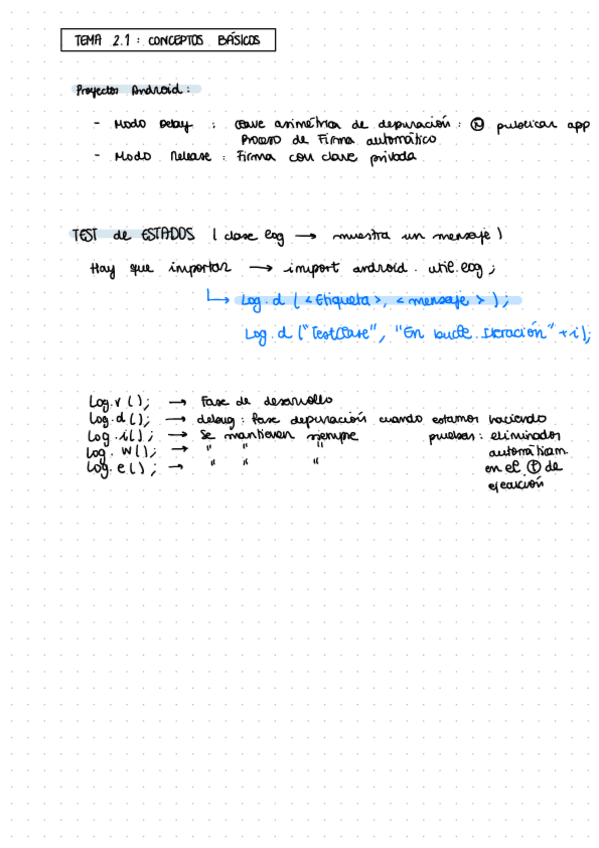 TEMA 2.1: CONCEPTOS BÁSICOS
Proyectos Android:
- Modo Delay : Clave asimétrica de depuración: Ⓝ publicar app
Proceso de Firma automático
- Modo Release : Firma con clave privada
TEST de ESTADOS ( clase Log → muestra un mensaje )
Hay que importar → import android.util.Log;
↳ Log.d ( <Etiqueta>, <mensaje> );
Log.d ("TestClase", "En bucle. Iteración" + i);
Log.v (); → Fase de desarrollo
Log.d (); → debug: fase depuración cuando estamos haciendo
Log.i(); → Se mantienen siempre pruebas: eliminados
Log. w(); → " " " automáticam.
Log.e(); → " " " en el Ⓣ de
ejecución